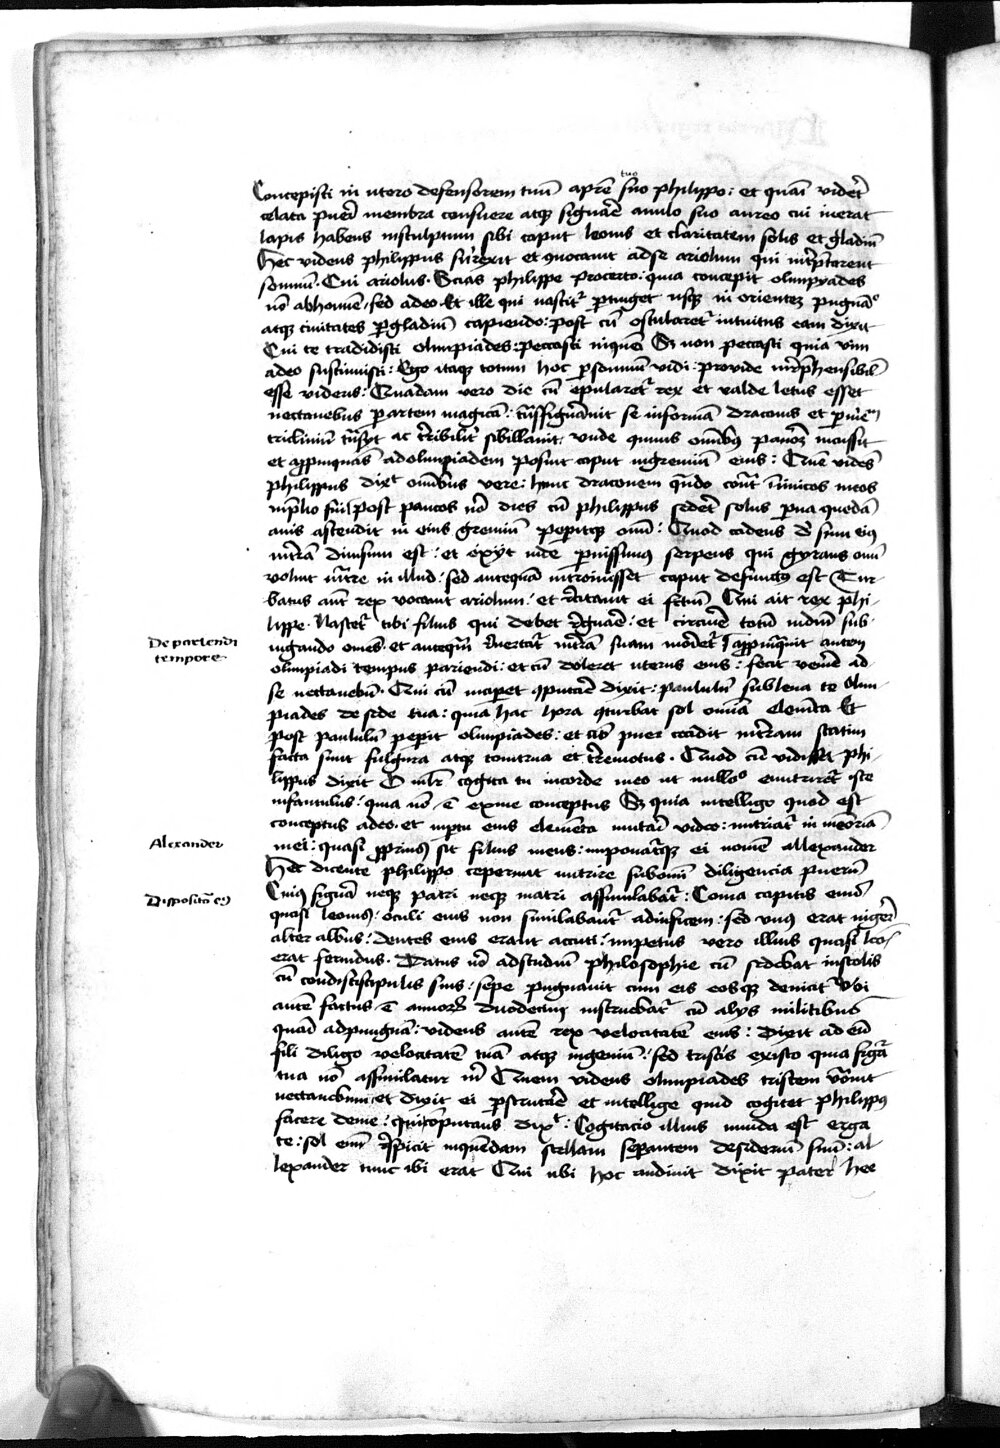 Concepisti in utero defensorem tuum apre suo tuo philippo : et quasi videret
celata pueri membra consuere atque signare anulo suo aureo cui inerat
lapis habens insculptum sibi caput leonis et claritatem solis et gladium
Hec videns philippus surrexit et vocavit ad se ariolum qui interpretaret
somnium . Cui ariolus . Scias philippe pro certo : quia concepit olimpyades
non ab homine / sed a deo . Et ille qui nascitur pertinget usque in orientem pugnando
atque civitates per gladium capiendo : post cum oscularetur intuitus eam dixit
Cui te tradidisti olimpiades : peccasti Sed non peccasti quia vim
a deo sustinuisti : Ego itaque totum hoc per somnium vidi : provide irreprehensibilis
esse videris : Quadam vero die cum epularetur rex et valde letus esset
nectanebus per artem magicam : transfiguravit se in formam draconis et per
triclinium transiit ac terribiliter sibillavit unde quivis omnibus pavorem incussit
et appropinquans ad olimpiadem posuit caput in gremium eius : Quem videns
philippus dixit omnibus vere : hunc draconem quando contra inimicos meos
in prelio fui / post paucos vero dies cum philippus sederet solus parva quedam
avis ascendit in eius gremium peperitque ovum : Quod cadens de sinu eius
in terram divisum est : et exiit inde parvissimus serpens qui gyrans ovum
voluit intrare in illud : sed antequam introivisset caput defunctus est Tur-
batus autem rex vocavit ariolum : et recitavit ei factum Qui ait rex phi-
lippe . Nascetur tibi filius qui debet regnare : et circuire totum mundum sub-
iugando omnes . et antequam revertatur in terram suam morietur appropinquavit autem
De pariendi
tempore
olimpiadi tempus pariendi : et cum doleret uterus eius : fecit venire ad
se nectanebum . Qui cum inciperet computare dixit : paululum subleva te olim-
piades de sede tua : quia hac hora conturbat sol omnia elementa Et
post paululum peperit olimpiades : et cum puer cecidit in terram statim
facta sunt fulgura atque tonitrua et terremotus . Quod cum vidisset phi-
lippus dixit O mulier cogita tu in corde meo ut nullo enutriretur iste
infantulus : quia non est ex me conceptus Sed quia intelligo quod est
conceptus a deo . et in partu eius elementa mutari video : nutriatur in memoriam
Alexander
mei : quasi proprius sit filius meus : imponaturque ei nomen allexander
Hec dicente philippo ceperunt nutrire sub omni diligencia puerum
Dispositio eius
Cuius figura neque patri neque matri assimilabatur : Coma capitis eius
quasi leonis / oculi eius non similabantur adinficem : sed unus erat niger
alter albus : dentes eius erant acuti : impetus vero illius quasi leo-
erat fervidus . Datus vero ad studium philosophie cum sedebat in scolis
cum condiscisscipulis suis : sepe pugnavit cum eis eosque devicit Ubi
autem factus est annorum duodecim instruebatur cum alys militibus
quasi ad pugnam : videns autem rex velocitatem eius : Dixit ad eum
fili diligo velocitatem tuam atque ingenium : sed tristis existo quia figura
tua non assimilatur mihi Quem videns olimpiades tristem vocavit
nectanebum : et dixit ei perscrutare et intellige quid cogitet philippus
facere de me : qui computans dixit : Cogitacio illius munda est erga
te : sol enim respicit in quendam stellam separantem desiderium suum : al-
lexander tunc ibi erat Qui ubi hoc audivit dixit pater hee